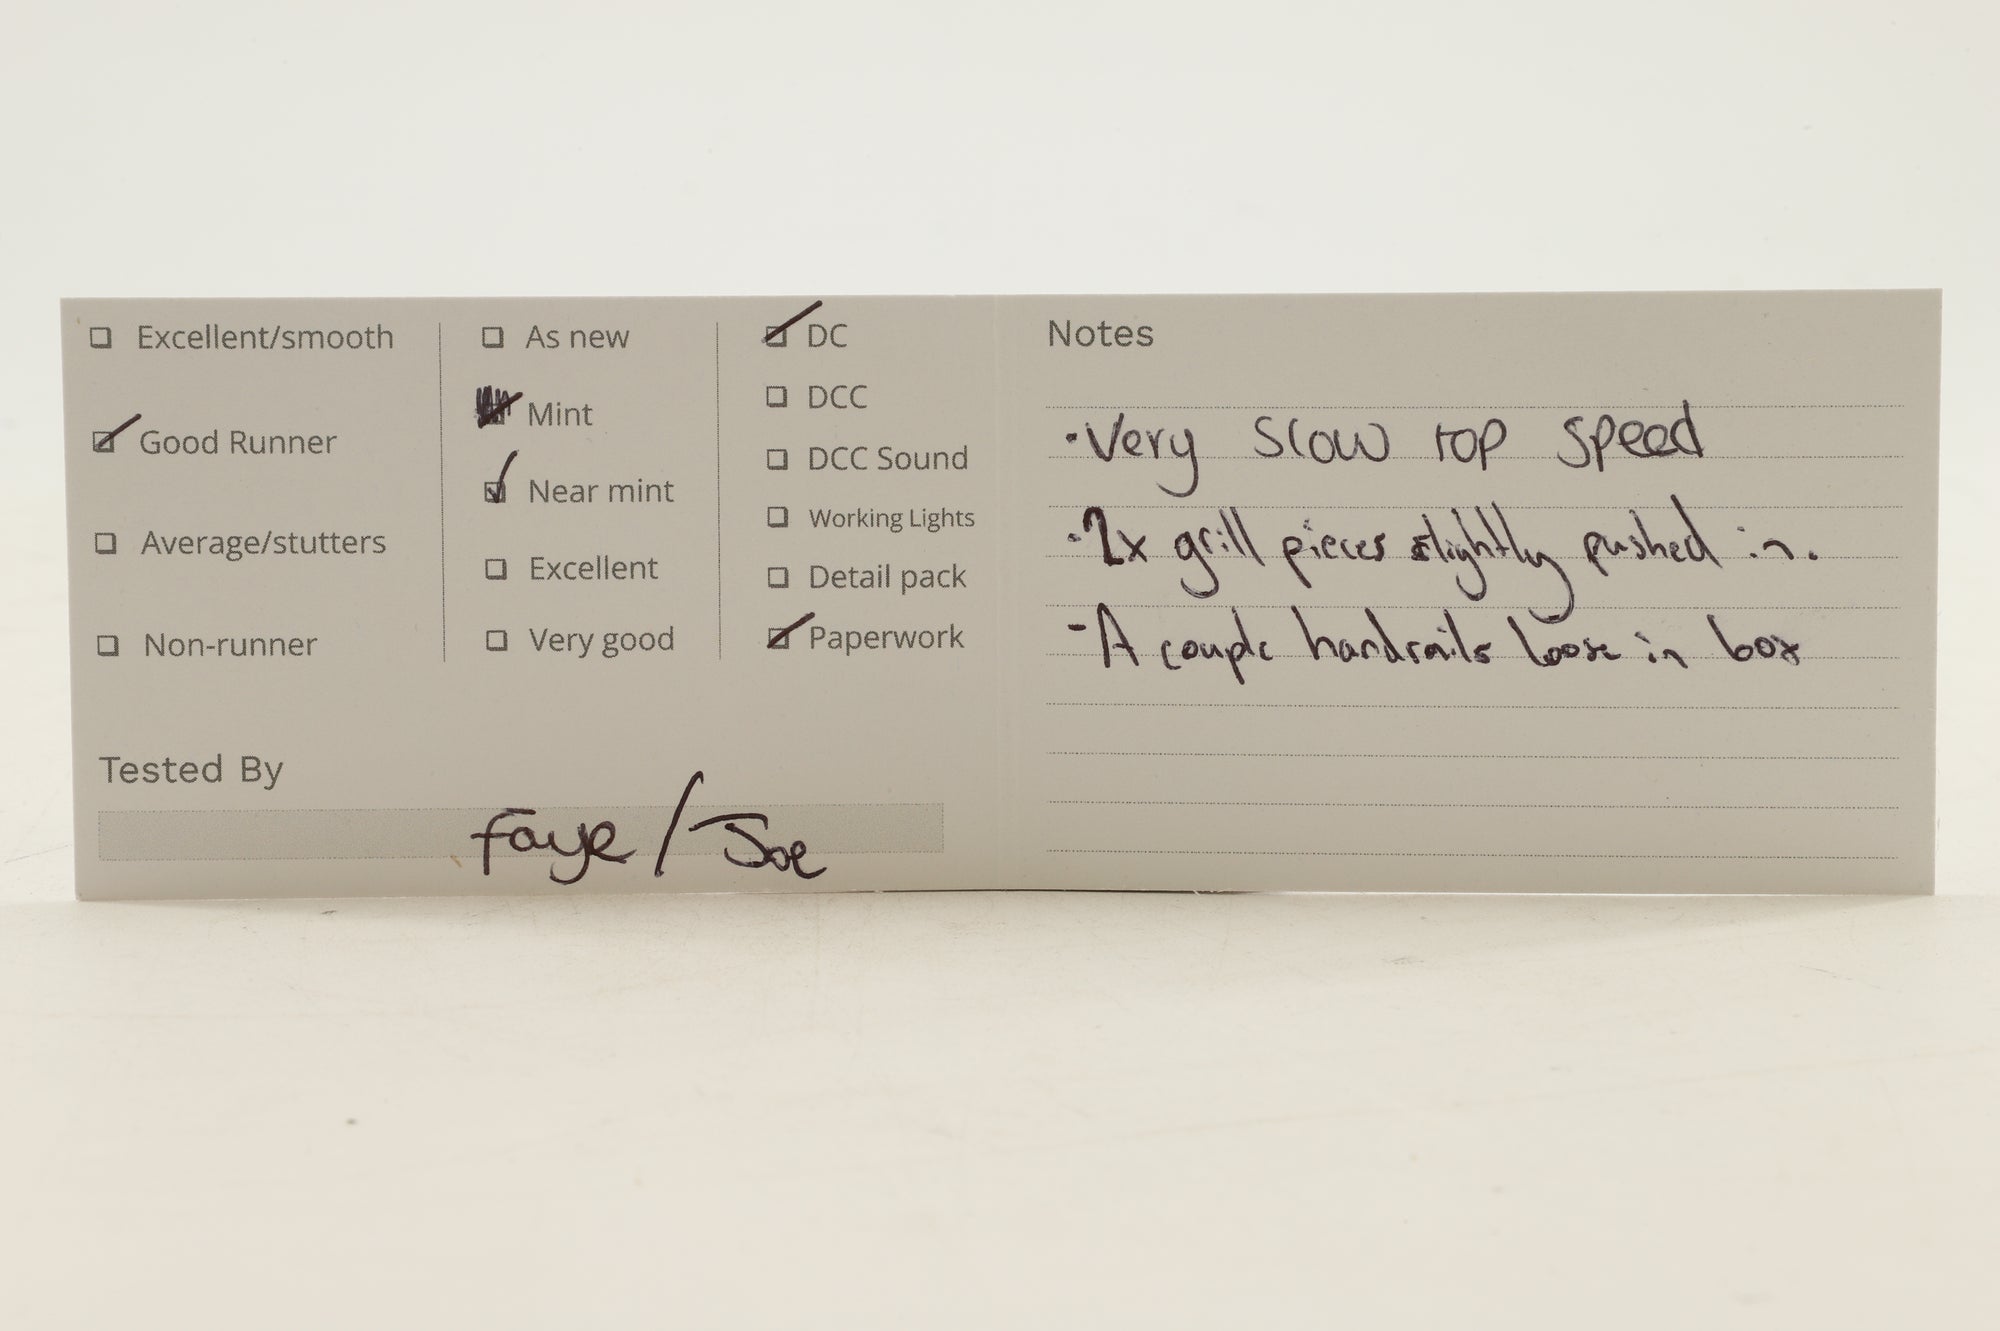 Excellent/smooth
Good Runner
Average/stutters
Non-runner
As new
Mint
Near mint
Excellent
Very good
DC
DCC
DCC Sound
Working Lights
Detail pack
Paperwork
Tested By
Faye / Joe
Notes
·Very slow top speed
·2x grill pieces slightly pushed in.
-A couple handrails loose in box